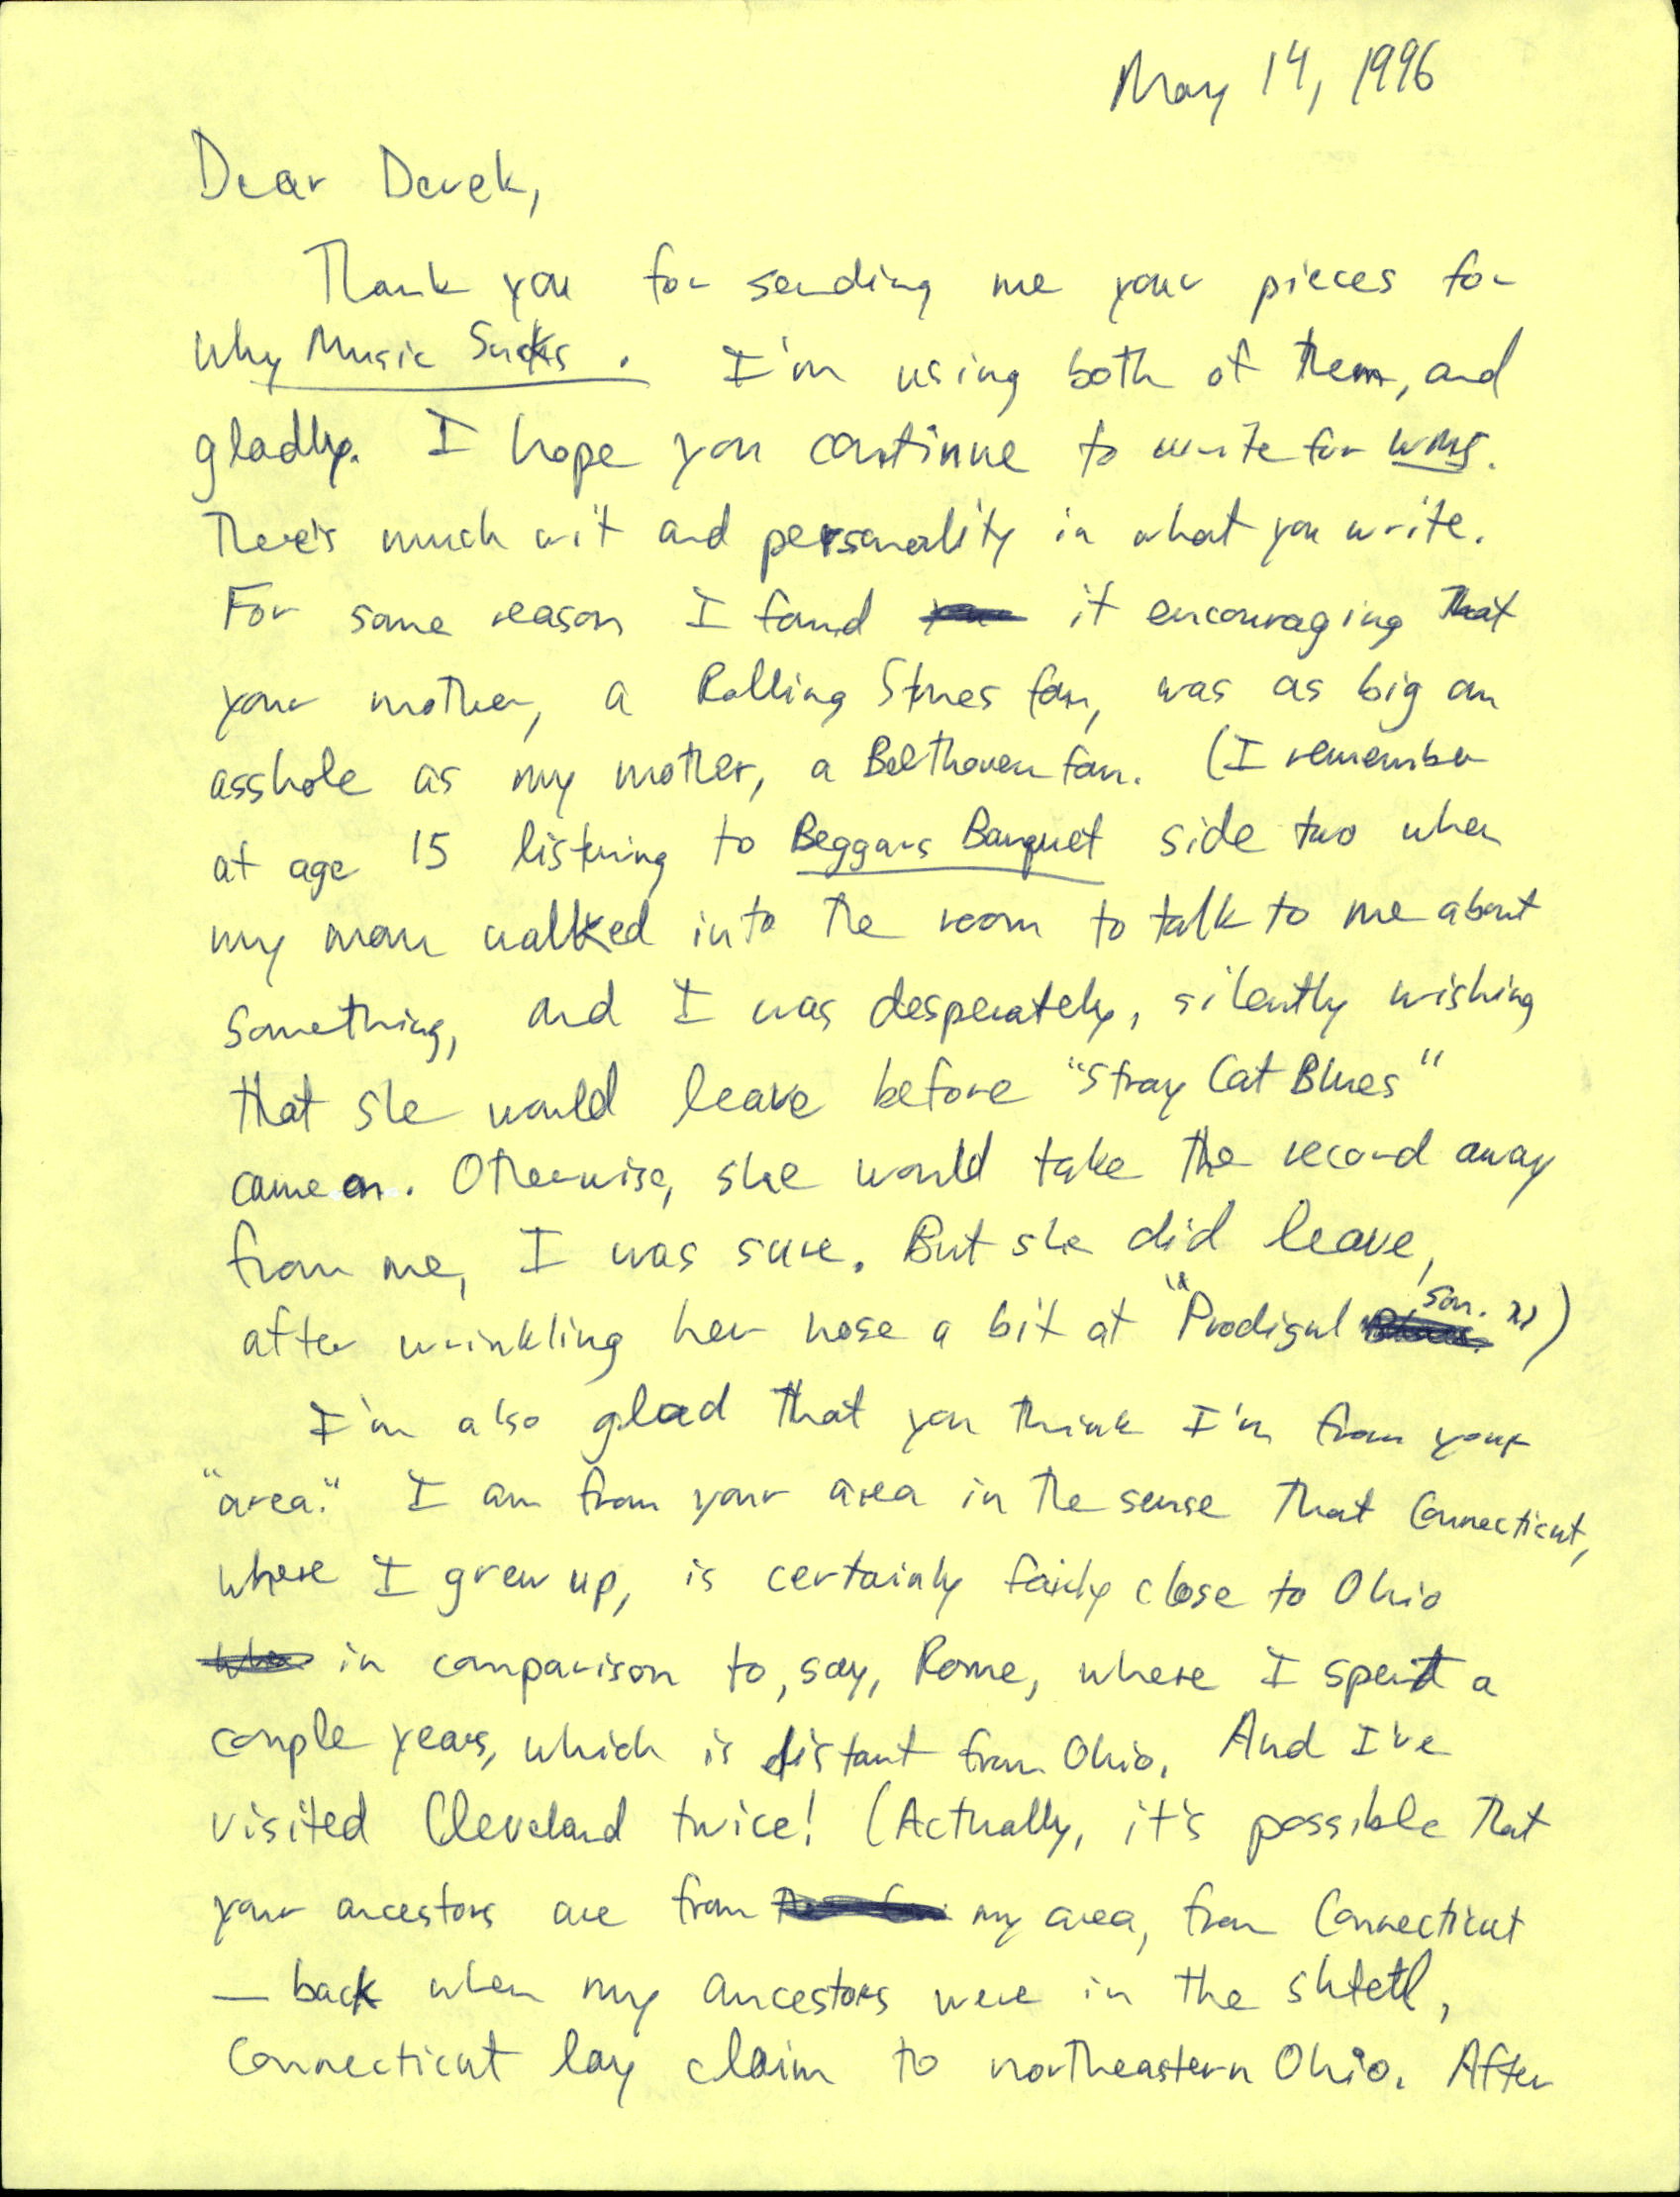 May 14, 1996
Dear Derek,
Thank you for sending me your pieces for
Why Music Sucks. I'm using both of them, and
gladly. I hope you continue to write for WMS.
There's much wit and personality in what you write.
For some reason I found it encouraging that
your mother, a Rolling Stones fan, was as big an
asshole as my mother, a Beethoven fan. (I remember
at age 15 listening to Beggars Banquet side two when
my mom walked into the room to talk to me about
something, and I was desperately, silently wishing
that she would leave before "Stray Cat Blues"
came on. Otherwise, she would take the record away
from me, I was sure. But she did leave,
after wrinkling her nose a bit at "Prodigal Son.")
I'm also glad that you think I'm from your
"area." I am from your area in the sense that Connecticut,
where I grew up, is certainly fairly close to Ohio
in comparison to, say, Rome, where I spent a
couple years, which is distant from Ohio. And I've
visited Cleveland twice! (Actually, it's possible that
your ancestors are from my area, from Connecticut
— back when my ancestors were in the shtetl,
Connecticut lay claim to northeastern Ohio. After